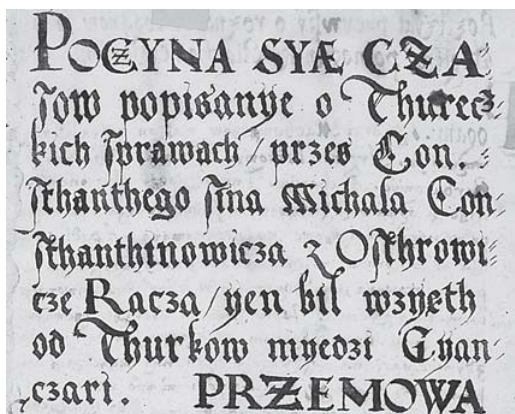 POCZYNA SYÆ CZA⸗
ſow popiſanye o Thurecz⸗
kich ſprawach / przes Con⸗
ſthanthego ſina Michala Con⸗
ſthanthinowicza z Oſthrowi⸗
cze Racza / yen bil wzyeth
od Thurkow myedzi Gyan⸗
czari. PRZEMOWA